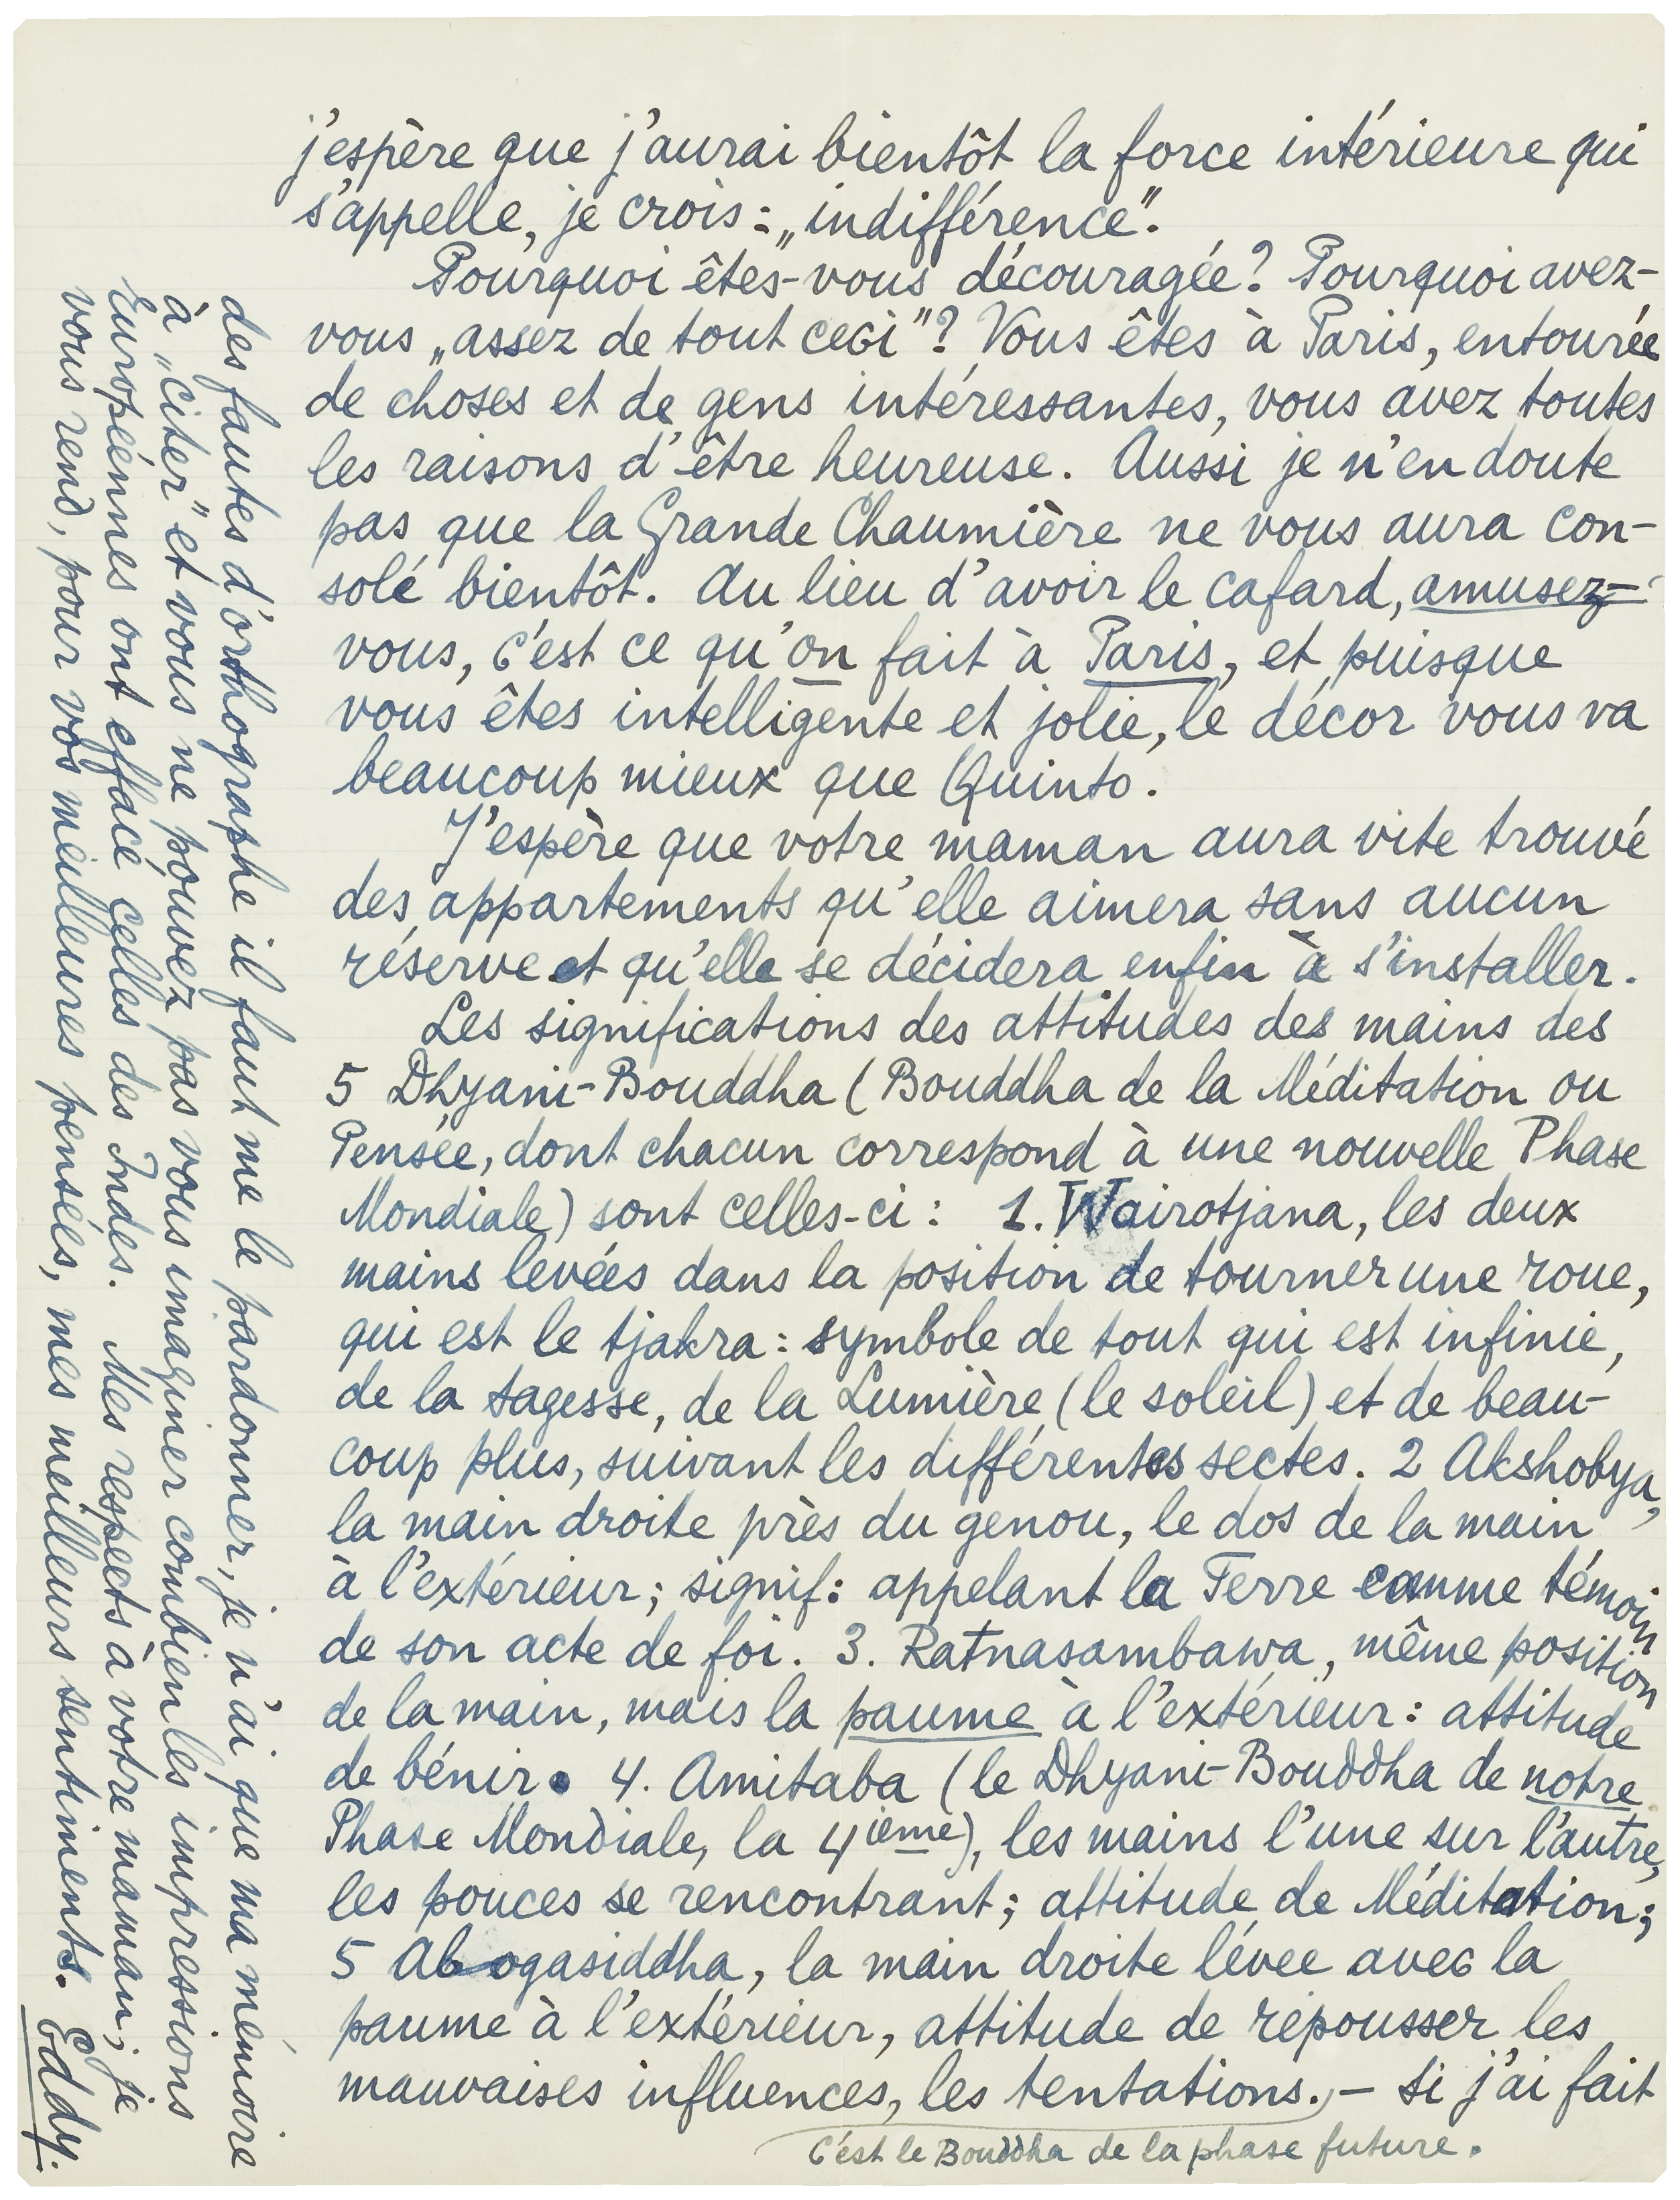 j'espère que j'aurai bientôt la force intérieure qui
s'appelle, je crois: „indifférence".
Pourquoi êtes-vous découragée? Pourquoi avez-
vous „assez de tout ceci"? Vous êtes à Paris, entourée
de choses et de gens intéressantes, vous avez toutes
les raisons d'être heureuse. Aussi je n'en doute
pas que la Grande Chaumière ne vous aura con-
solé bientôt. Au lieu d'avoir le cafard, amusez-
vous, c'est ce qu'on fait à Paris, et puisque
vous êtes intelligente et jolie, le décor vous va
beaucoup mieux que Quinto.
J'espère que votre maman aura vite trouvé
des appartements qu'elle aimera sans aucun
réserve et qu'elle se décidera enfin à s'installer.
Les significations des attitudes des mains des
5 Dhyani-Bouddha (Bouddha de la Méditation ou
Pensée, dont chacun correspond à une nouvelle Phase
Mondiale) sont celles-ci: 1. Wairotjana, les deux
mains levées dans la position de tourner une roue,
qui est le tjakra: symbole de tout qui est infinie,
de la sagesse, de la Lumière (le soleil) et de beau-
coup plus, suivant les différentes sectes. 2 Akshobya,
la main droite près du genou, le dos de la main
à l'extérieur; signif: appelant la Terre comme témoin
de son acte de foi. 3. Ratnasambawa, même position
de la main, mais la paume à l'extérieur: attitude
de bénir. 4. Amitaba (le Dhyani-Bouddha de notre
Phase Mondiale, la 4ième), les mains l'une sur l'autre,
les pouces se rencontrant; attitude de Méditation;
5 Abogasiddha, la main droite lévee avec la
paume à l'extérieur, attitude de répousser les
mauvaises influences, les tentations. – Si j'ai fait
C'est le Bouddha de la phase future.
des fautes d'orthographe il faut me le pardonner, je n'ai que ma mémoire
à „citer" et vous ne pouvez pas vous imaginer combien les impressions
Européennes ont effacé celles des Indes. Mes respects à votre maman; je
vous rend, pour vos meilleures pensées, mes meilleurs sentiments. Eddy.